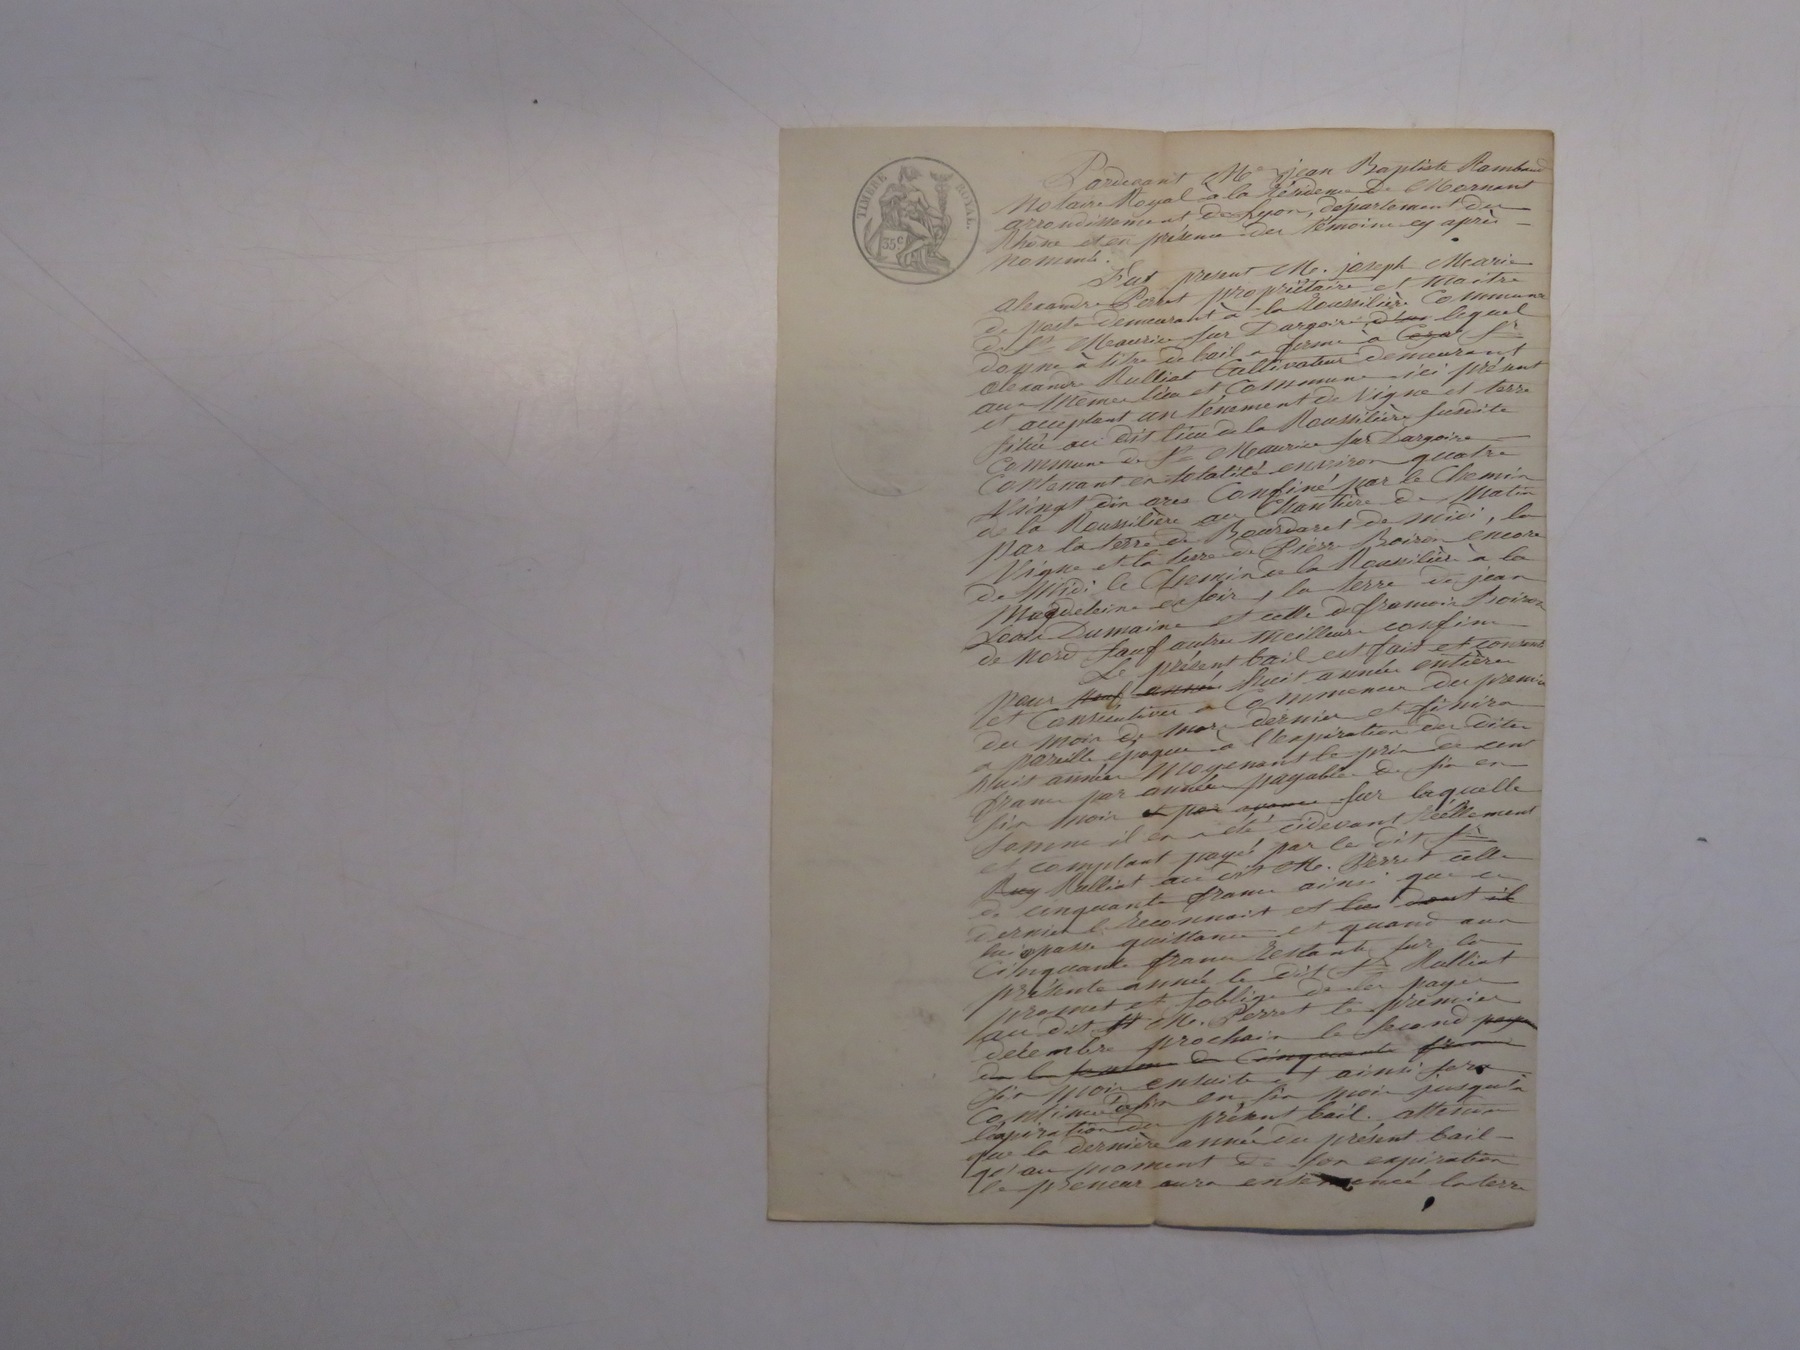 TIMBRE ROYAL
35c
Pardevant Me jean Baptiste Rambaud
Notaire Royal à la résidence de Mornant
arrondissement de Lyon, département du
Rhône et en présence des témoins cy après
nommés.
Fut présent M. joseph Marie
alexandre Perret propriétaire et Maitre
de poste demeurant à la Roussilière Commune
de St Maurice sur Dargoire lequel
donne à titre de bail a ferme à Sr
alexandre Rulliat Cultivateur demeurant
aux mêmes lieu et Commune ici présent
et acceptant un ténement de Vigne et terre
situé au dit lieu de la Roussilière susdite
Commune de St Maurice sur Dargoire
Contenant en totalité environ quatre
Vingt dix ares Confiné par le Chemin
de la Roussilière au de Matin
par la terre de Bourdaret de midi, la
Vigne et la terre de Pierre Boiron encore
de Midi le Chemin de la Roussilière à la
Magdeleine de soir, la terre de jean
Louis Dumaine et celle de francois Boiron
de Nord sauf autres meilleurs confins
Le présent bail est fait et convenu
pour neuf années huit années entières
et Consécutives a Commencer du premier
du mois de mars dernier et finira
a pareille époque à l'expiration des dites
huit années Moyenant le prix de cent
francs par année payable de six en
six mois et par avance sur laquelle
somme il en a été cidevant réellement
et comptant payé par le dit Sr
Rulliat au dit M. Perret celle
de cinquante francs ainsi que ce
dernier le reconnait et dont il
lui passe quittance et quand aux
Cinquante francs restants sur la
présente année le dit Sr Rulliat
promet et s'oblige de les payer
au dit M. Perret le premier
décembre prochain le second
de la somme de Cinquante francs
six mois ensuite et ainsi sera
Continué de six en six mois jusqu'à
l'expiration du présent bail. attendu
que la dernière année du présent bail
qu'au moment de son expiration
le preneur aura ensemencé la terre